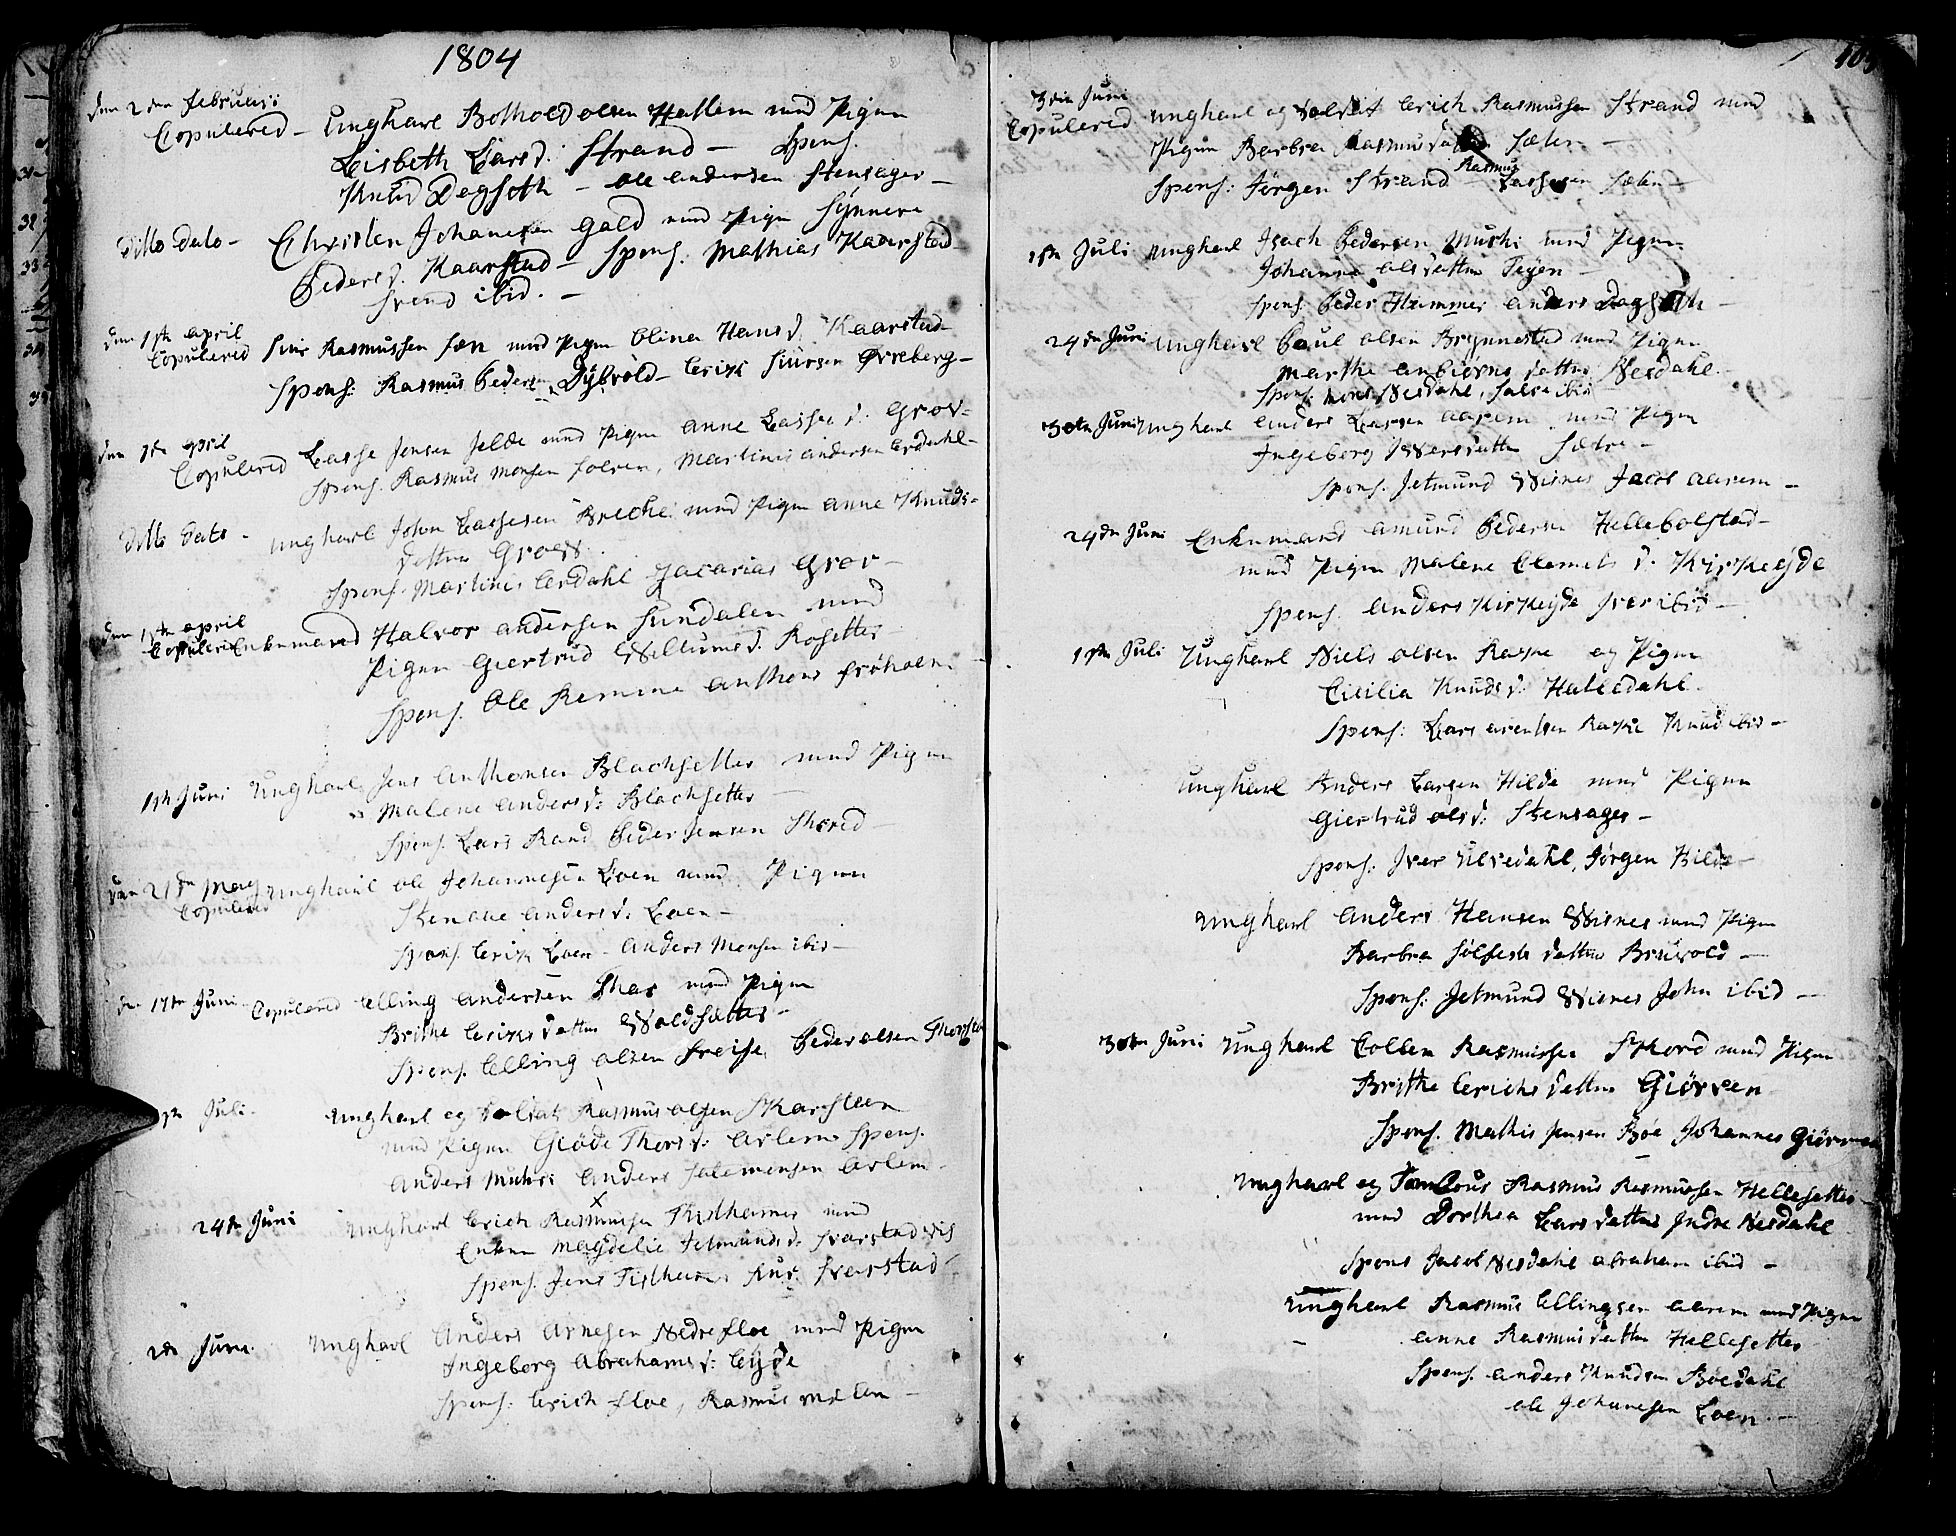 1804
den 2den februarii
Copulered - Ungkarl Bothold olsen Hallem med Pigen
Lisbeth Larsd: Strand - Spons.
Knud Degseth - ole andersen Stensager -
Ditto Dato - Christen Johanesen Gald med Pigen Synneve
Pedersd. Kaarstad - Spons: Mathias Kaarstad
Svend ibid. -
den 1ste april
Copulered Siur Rasmussen Sæn med Pigen Olina Hansd. Kaarstad
Spons: Rasmus Pedersen Dybvold - Erick Siursen Øvreberg -
den 7de april
Copulered Lasse Jensen Jelde med Pigen anne Lassesd: Grov -
Spons. Rasmus Monsen Solvem, Martinus andersen Erdahl -
Ditto Dato - ungkarl John Lassesen Breche med Pigen anne Knuds-
datter Grov
Spons. Martinus Erdahl Zacarias Grov -
den april
Copulered Enkemand Halvor andersen Sundalen med
Pigen Giertrud Willumsd. Rosetter
Spons. Ole Remme anthons frøholm
Juni Ungkarl Jens Anthonsen Blachsetter med Pigen
Malene andersd: Blachsetter -
Spons. Lars Rand Peder Jensen Skored
den 21de May ungkarl ole Johannesen Loen med Pigen
Copulered
andersd: Loen -
Spons. Erick Loen - anders Monsen ibid -
den 17de Juni - Copulered Elling andersen med Pigen
Brithe Ericks datter Woldsætter -
Spons. Elling olsen freise, Peder olsen
Juli - ungkarl og Soldat Rasmus olsen Skarsteen
med Pigen Giøde Thorsd: Arlem Spons.
anders Muhri anders Salamonsen Arlem -
24de Juni ungkarl Erich Rasmusen Tisthamer med
Enken Magdelie Jetmundsd. Svarstad
Spons. Jens Tisthamer Siur Svarstad
2den Juni. ungkarl Anders Arnesen Nedrefloe med Pigen
Ingeborg Abrahamsd: Eyde
Spons: Erich floe, Rasmus Melem -
3die Juni
Copulered ungkarl og Soldat Erich Rasmussen Strand med
Pigen Barbra Rasmusdatter Sæter -
Spons: Jørgen Strand - Rasmus Lassesen Sæter -
1ste Juli ungkarl Isach Pedersen Muhri med Pigen
Johanne olsdatter Teyen -
Spons: Peder Hammer anders Dagseth -
24de Juni ungkarl Poul olsen Brynnestad med Pigen
Marthe anbiørns datter Nesdahl.
Spons. Mons Nesdahl, ibid
30te Juni ungkarl anders Larsen aarem med Pigen
Ingeborg Iversdatter Sætre -
Spons. Jetmund Wisnes Jacob aarem -
24de Juni Enkemand amund Pedersen Hellebolstad -
med Pigen Malene Clemets d. Kirkeeyde
Spons. Anders Kirkeyde Iver ibid -
1ste Juli Ungkarl Niels olsen Raske og Pigen
Cicilia Knudsd: Halledahl.
Spons: Lars arentsen Raske Knud ibid -
Ungkarl Anders Larsen Hilde med Pigen
Giertrud olsd: Stensager -
Spons. Iver Ulvedahl, Jørgen Hilde -
Ungkarl anders Hansen Wisnes med Pigen
Barbra Sølfest datter Bruvold -
Spons. Jetmund Wisnes John ibid -
30te Juni Ungkarl Collem Rasmussen Skord med Pigen
Brithe Erichs datter Giørven
Spons. Mathis Jensen Bøe Johannes Giørven
Ungkarl og Tambour Rasmus Rasmussen Hellesetter -
med Dorthea Lars datter Indre Nesdahl
Spons Jacob Nesdahl abraham ibid -
Ungkarl Rasmus Ellingsen aarem med Pigen
anne Rasmusdatter Hellesetter
Spons. anders Knudsen Bøedahl
ole Johanesen Loen. -